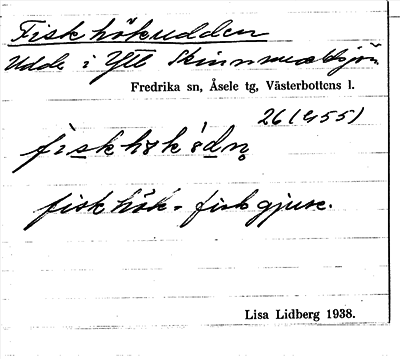 Fiskhökudden
Udde i Ytt Skinnmuddsjön
Fredrika sn, Åsele tg, Västerbottens l.
26 (455)
fiskhök - fiskgjuse.
Lisa Lidberg 1938.